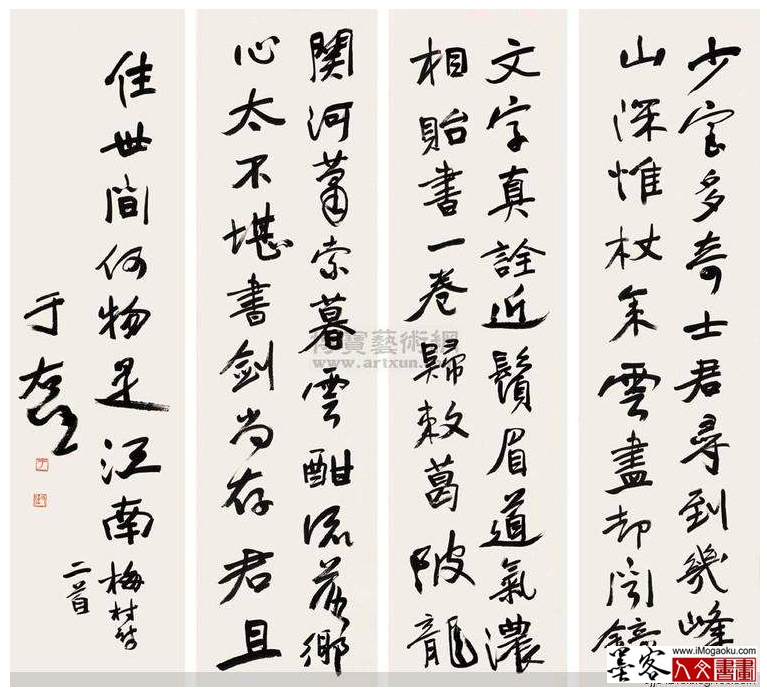 少室多奇士君尋到幾峰
山深惟杖策雲盡却聞鐘
文字真詮近鬚眉道氣濃
相貽書一卷歸敕葛陂龍
關河蕭索暮雲酣流落鄉
心太不堪書劍尚存君且
住世間何物是江南梅村詩
二首
于右任
博寶藝術網
www.artxun.com
www.iMogaoku.com
墨客 人文書畫